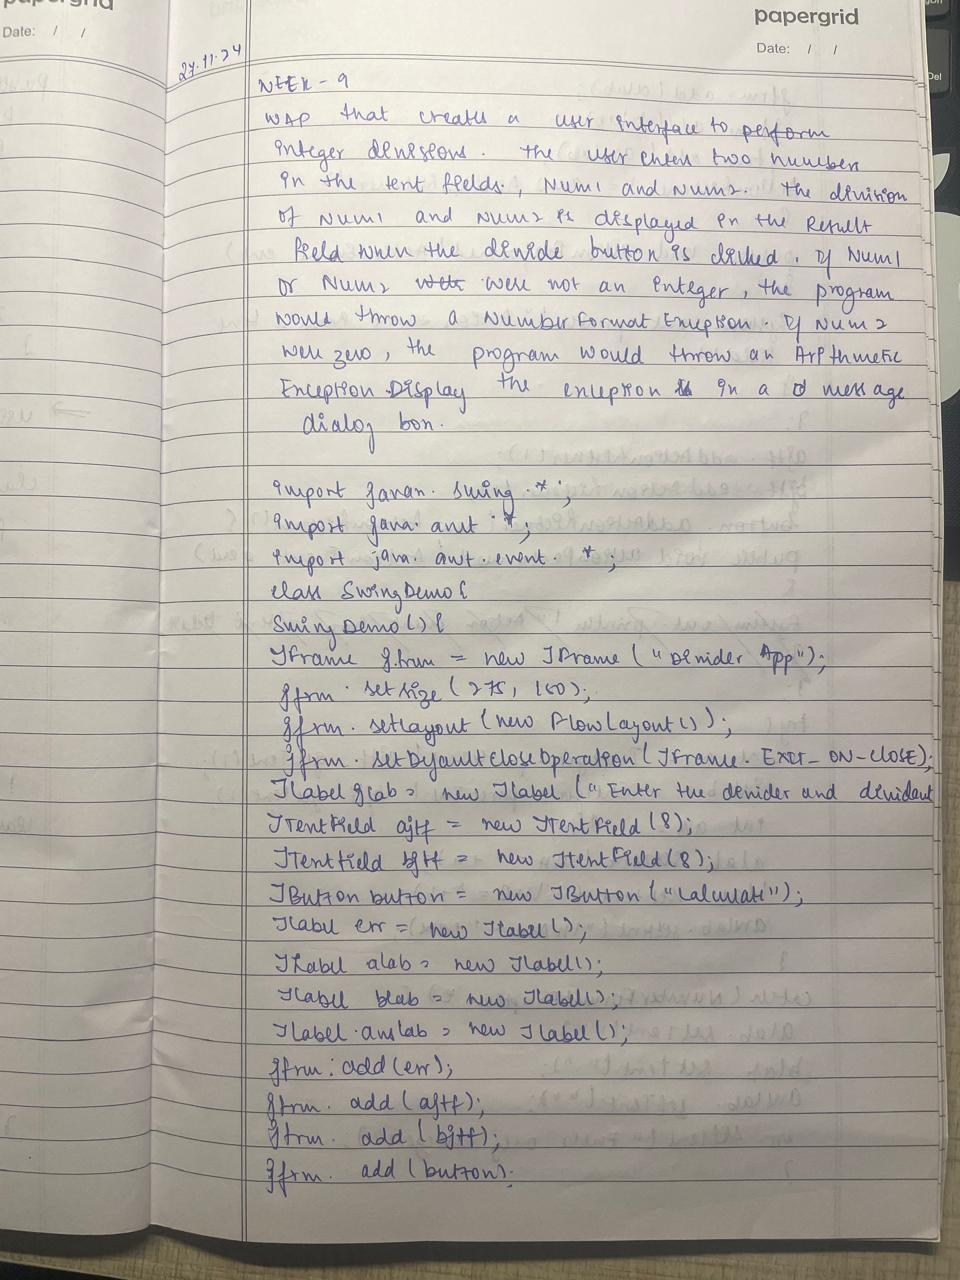 papergrid
Date: / /
papergrid
Date: / /
27.11.24
WEEK - 9
WAP that creates a user interface to perform
integer divisions. The user enters two numbers
in the text fields, Num1 and Num2. The division
of Num1 and Num2 is displayed in the Result
field when the divide button is clicked. If Num1
or Num2 were not an integer, the program
would throw a Number Format Exception. If Num2
were zero, the program would throw an Arithmetic
Exception Display the exception in a message
dialog box.
import javax. swing .*;
import java. awt .*;
import java. awt. event. *;
class SwingDemo{
SwingDemo(){
JFrame jfrm = new JFrame ("Divider App");
jfrm. setSize (275, 150);
jfrm. setLayout (new FlowLayout());
jfrm. setDefaultCloseOperation (JFrame. EXIT_ON_CLOSE);
JLabel jlab = new JLabel ("Enter the divider and dividant
JTextField ajtf = new JTextField (8);
JTextField bjtf = new JTextField (8);
JButton button = new JButton ("Calculate");
JLabel err = new JLabel ();
JLabel alab = new JLabel();
JLabel blab = new JLabel();
JLabel anslab = new JLabel ();
jfrm. add (err);
jfrm. add (ajtf);
jfrm. add (bjtf);
jfrm. add (button);